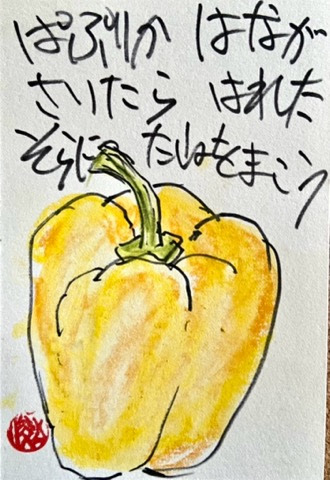 ぱぷりか はなが
さいたら はれた
そらに たねをまこう